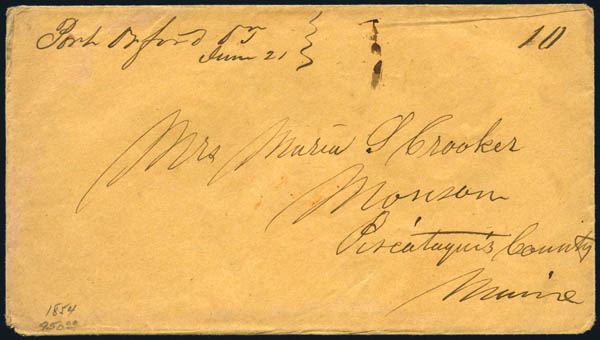 Port Orford OT
June 21
10
Mrs Maria S Crooker
Monson
Piscataquis County
Maine
1854
950.00